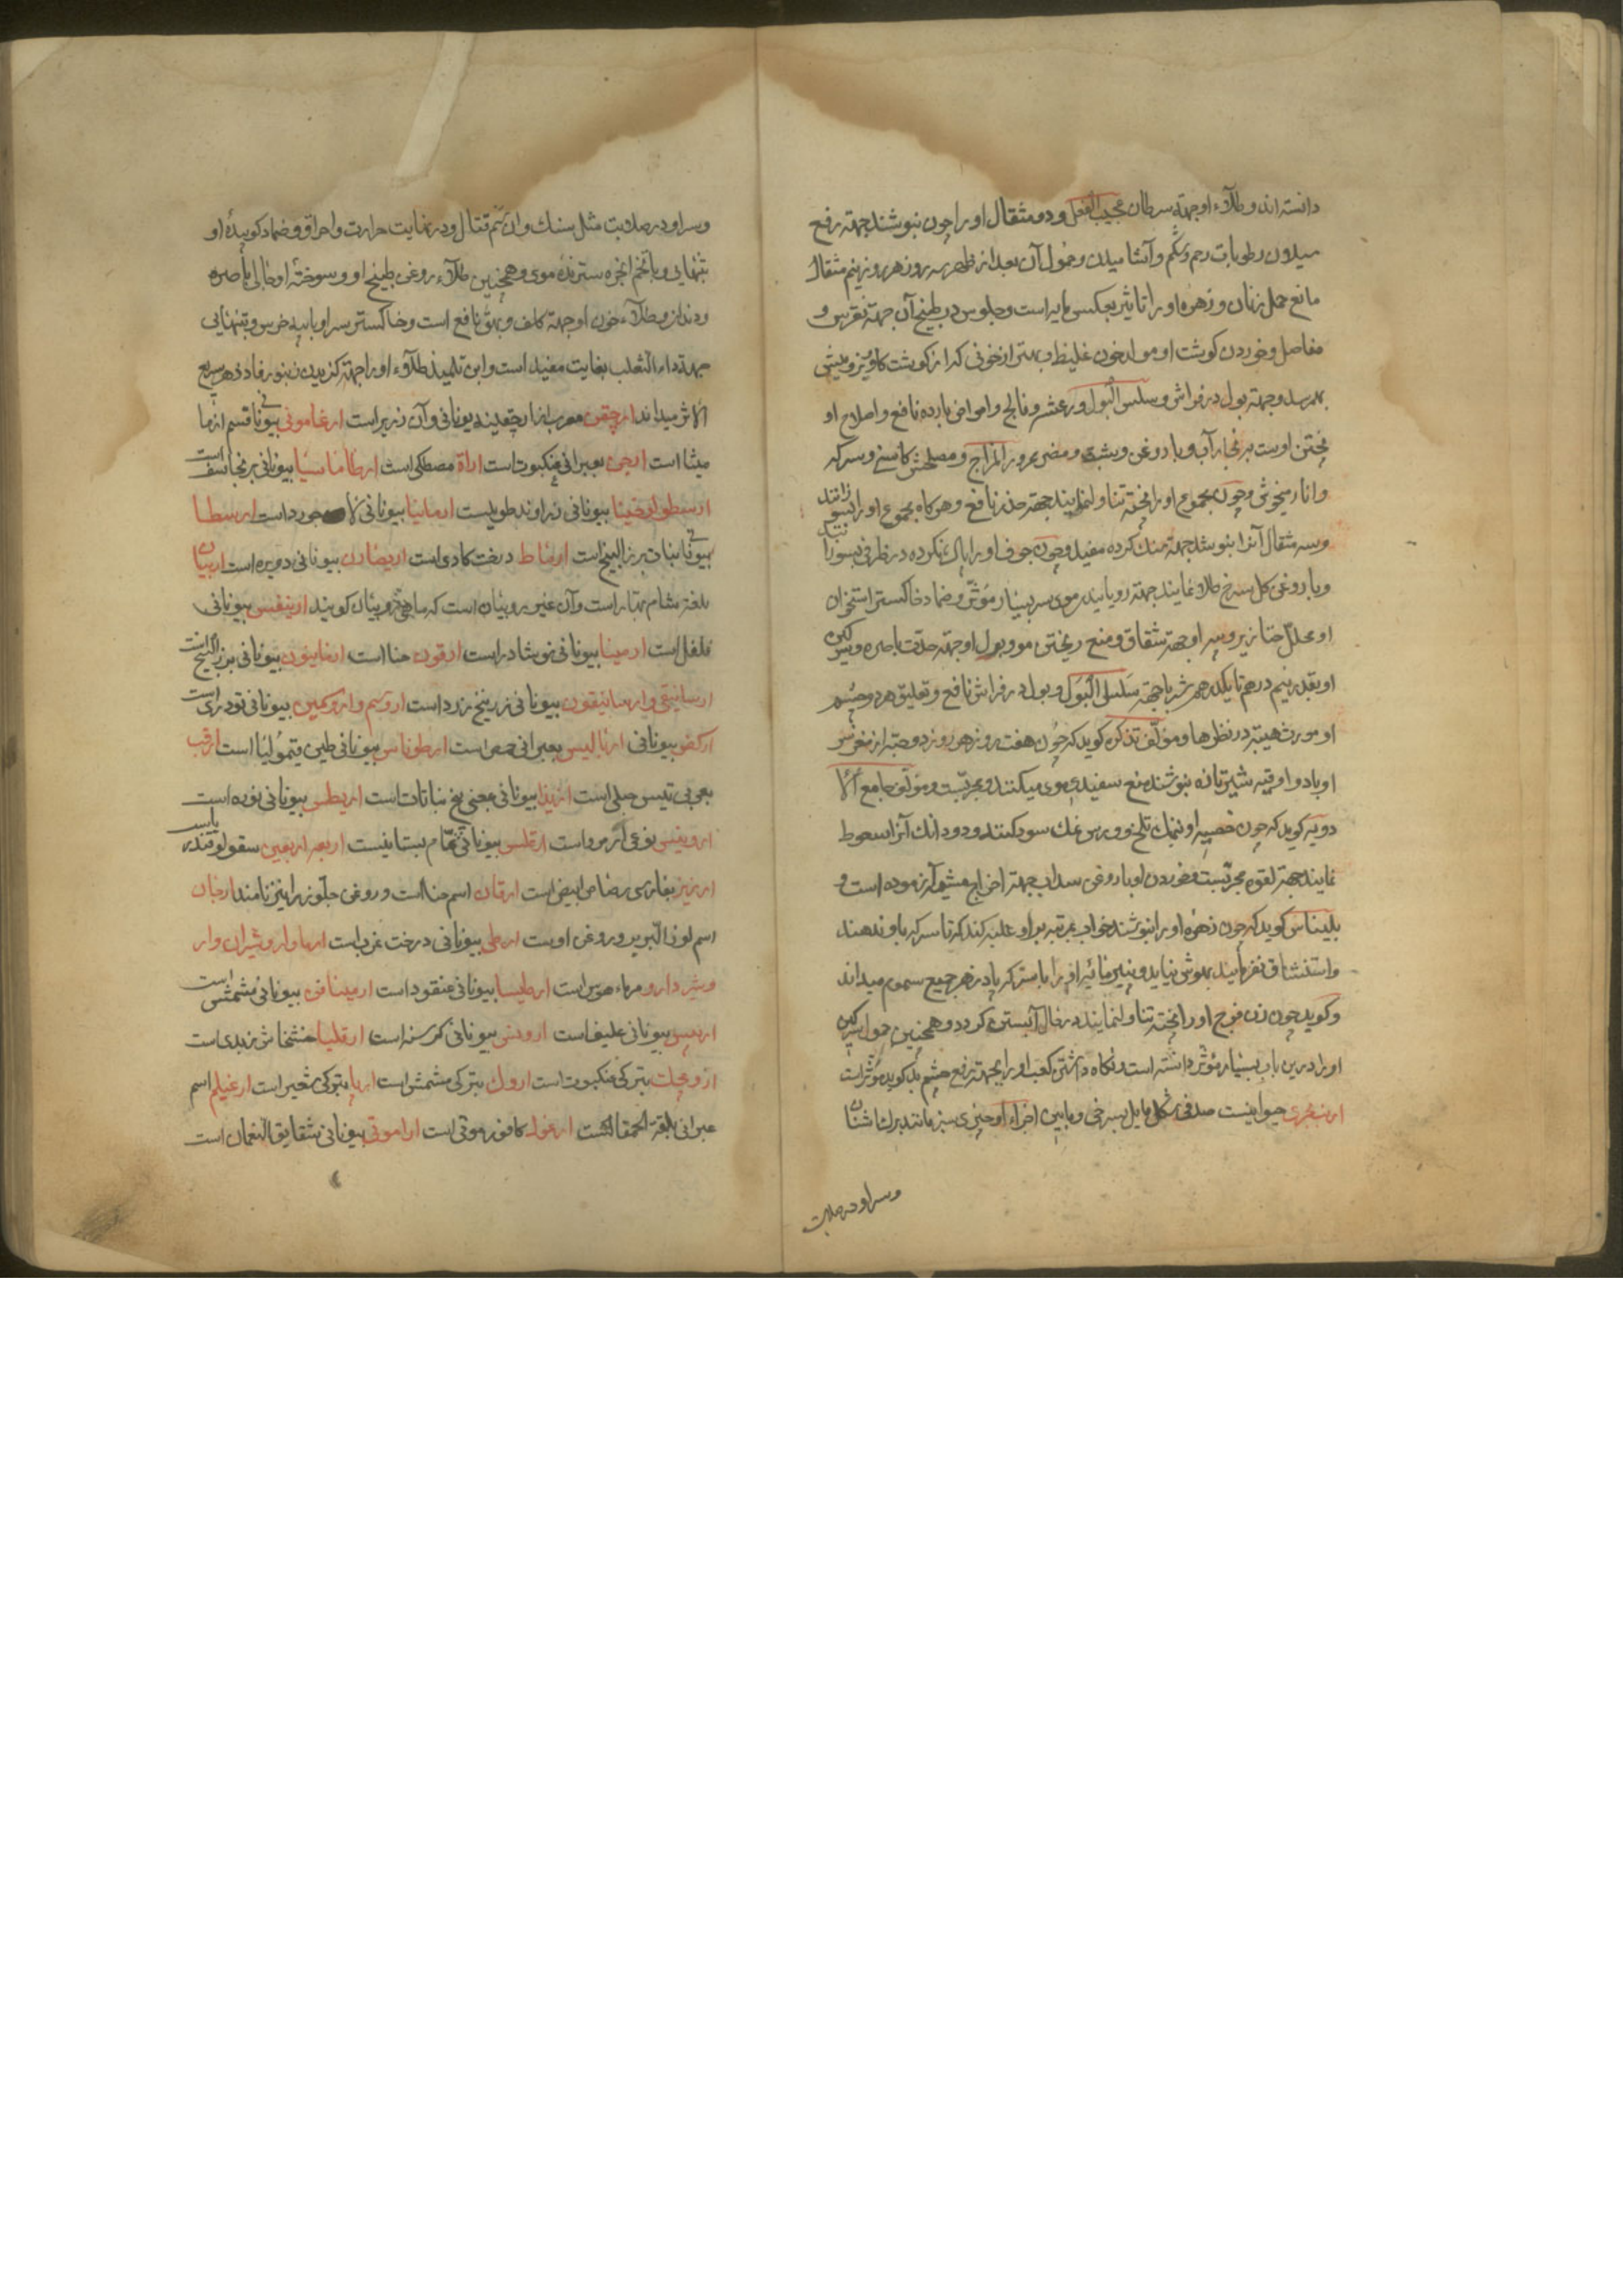 دانسته اند و طلاء او جهته سرطان عجیب الفعل و دو مثقال او را چون بنوشند جهته رفع
سیلان رطوبات رحم و شکم و آشامیدن و حمول آن بعد از طهر سه روز هر روز نیم مثقال
مانع حمل زنان و زهره او را تاثیر بعکس مایه است و جلوس در طبیخ آن جهته نقرس و
مفاصل و خوردن کوشت او مولد خون غلیظ و بهتر از خونی که از کوشت کاو و بز و میش
بهم رسد و جهته بول در فراش و سلس البول و رعشه و فالج و امراض بارده نافع و اصلاح او
پختن اوست به بخار آب و با روغن و شبت و مضر محرور المزاج و مصلحش کاسنی و سرکه
و انار میخوش و چون مجموع او را پخته تناول نمایند جهته حذر نافع و هرکاه مجموع او را بسوزانند
و سه مثقال آنرا بنوشند جهته سنک کرده مفید و چون جوف او را پاک نکرده در ظرفی بسوزانند
و با روغن کل سرخ طلا نمایند جهته رویانیدن موی سر بسیار مؤثر و ضماد خاکستر استخوان
او محلل خنازیر و پیه او جهته شقاق و منع ریختن مو و بول او جهته حدت باصره و سرکین
او بقدر نیم درهم تا یکدرهم شربا جهته سلس البول و بول در فراش نافع و تعلیق هر دو چشم
او مورث هیبته در نظرها و مؤلف تذکره کوید که چون هفت روز هر روز دو حبه از مغز سر
او با دو اوقیه شیر تازه بنوشند منع سفیدی موی میکند و مجربست و مؤلف جامع الا
دویه کوید که چون خصیه او بنمک تلخ و بوره نمک سود کنند و دو دانک آنرا سعوط
نمایند جهته لقوه مجربست و خوردن او با روغن سداب جهته اخراج مشیمه آزموده است و
بلیناس کوید که چون زهره او را بنوشند خواب بمرتبه بر او غلبه کند که تا سرکه باو ندهند
و استنشاق نفرمایند بهوش نیاید و پنیر مایه او را با سرکه پادزهر جمیع سموم میداند
و کویند چون زن فرج او را پخته تناول نماید در حال آبستن کردد و همچنین حمول سرکین
او را درین باب بسیار مؤثر دانسته است و نکاه داشتن کعب او را بجهته رفع چشم بد کوید مؤثر است
ارنب بحری حیوانیست صدفی شکل مایل بسرخی و مابین اجزاء او چیزی سبز مانند برک اشنان
و سر او در صلابت
و سر او در صلابت مثل سنک و ان سم قتال و در نهایت حرارت و احراق و ضماد کوبیده او
بتنهایی و با تخم انجره سترنده موی و همچنین طلاء روغن طبیخ او و سوخته او جالی باصره
و دندان و طلاء خون او جهته کلف و بهق نافع است و خاکستر سر او با پیه خرس و بتنهایی
جهته داء الثعلب بغایت مفید است و ابن تلمیذ طلاء او را جهته کزیدن زنبور فاد زهر سریع
الاثر میداند ارچقن معرب از ارچقینه یونانی و آن زریر است ارغامونی بیونانی قسم از ما
میثا است ارجن بعبرانی عنکبوت است اراة مصطکی است ارطاماسیا بیونانی برنجاسف است
ارسطولوخیا بیونانی زراوند طویلست ارمانیا بیونانی لاجورد است ارسطا
بیونانی نبات بزرالبنج است ارماط درخت کادی است اریصارون بیونانی دویره است اربیان
بلغة شام بهار است و آن غیر روبیان است که ماهی روبیان کویند ارنیقس بیونانی
فلفل است ارمینا بیونانی نوشادر است ارقون حنا است ارغاینون بیونانی بزرالبنج است
ارسانیقی و ارسانیقون بیونانی زرنیخ زرد است اروسیم و اروکمین بیونانی تودری است
ارکفر بیونانی ارنالیس بعبرانی حمص است ارطوناس بیونانی طین قیمولیا است ارقب
بعربی تیس جبلی است اریذا بیونانی بمعنی بیخ نباتات است اریطس بیونانی نوره است
ارونیس نوعی از مرو است ارقلس بیونانی نمام بستانیست اربعه اربعین سقولوفندریس
ارزیز بفارسی رصاص ابیض است ارقان اسم حنا است و روغن جلوز را نیز نامند ارجان
اسم لوز البربر و روغن اوست ارطی بیونانی درخت غرب است ارما و اروشیران و ار
وشیردارو مرماحوس است ارطیسا بیونانی عنقود است ارمینافن بیونانی مشمش است
اربیس بیونانی علیف است اروبس بیونانی کرسنه است ارقلیا خشخاش زبدی است
ازومجک بترکی عنکبوت است اروک بترکی مشمش است ارپا بترکی شعیر است ارغیلم اسم
عبرانی بقلة الحمقا است ارغول کافور موتی است اراموتی بیونانی شقایق النعمان است